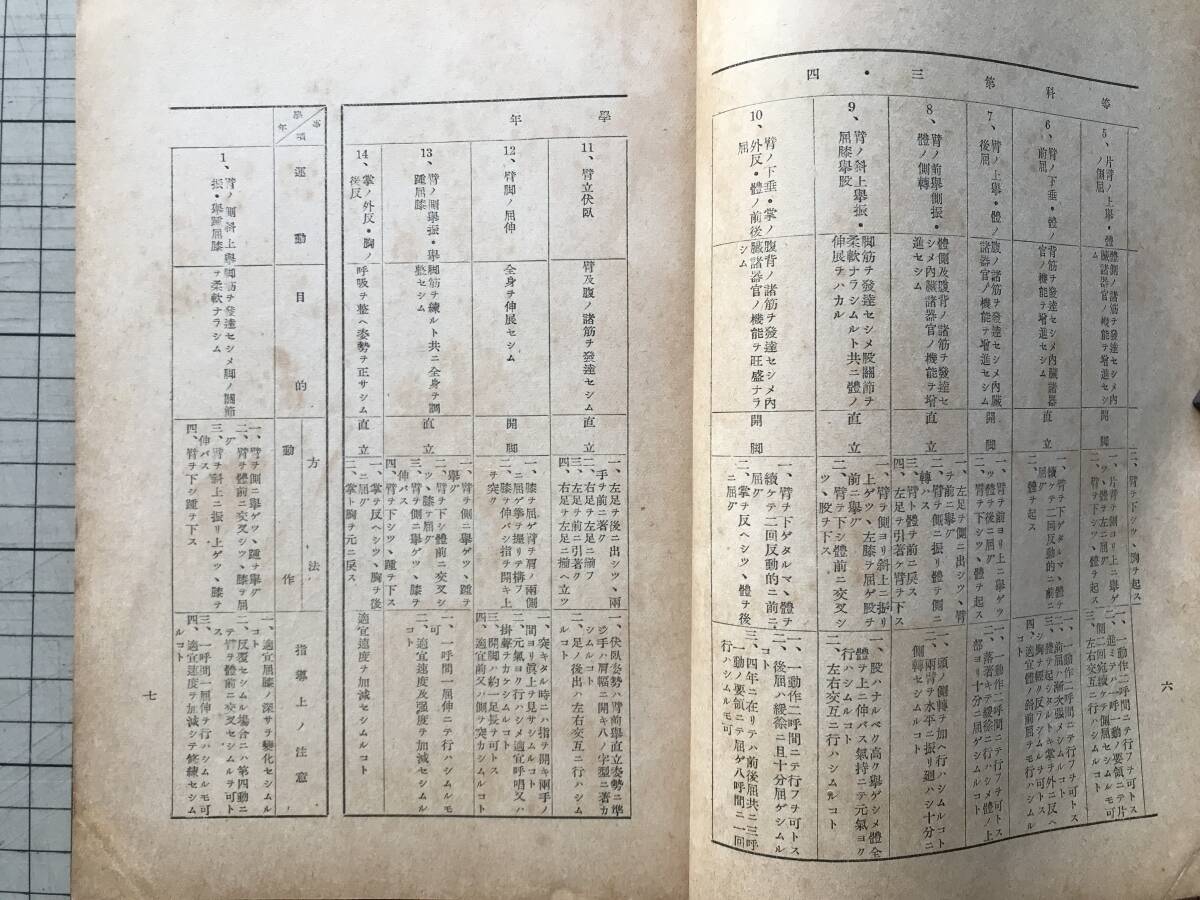 等科第三・四
二、臂ヲ下シツヽ胸ヲ起ス
5、片臂ノ上擧・體
ノ側屈
體側ノ諸筋ヲ發達セシメ内
臟諸器官ノ機能ヲ增進セシ
ム
開脚
一、片臂ヲ側ヨリ上ニ擧ゲ
ツヽ體ヲ左ニ屈グ
二、臂ヲ下シツヽ體ヲ起ス
一、一動作二呼間ニテ行フヲ可トス
二、進ミテハ一呼一動ノ要領ニテ片
側二囘宛續ケテ側屈セシムルモ可
三、左右交互ニ行ハシムルコト
6、臂ノ下垂・體ノ
前屈
背筋ヲ發達セシメ内臟諸器
官ノ機能ヲ增進セシム
直立
一、臂ヲ下ゲタルマヽ體ヲ
續ケテ二囘反動的ニ前ニ
屈グ
二、體ヲ起ス
一、一動作二呼間ニテ行フヲ可トス
二、前屈ハ漸次强メシムルコト
三、體ヲ起シタルトキ掌ヲ外ニ反ヘ
シ胸ヲ輕ク反ラシムルヲ可トス
四、適宜體ノ斜前屈ヲ行ハシムルモ可
7、臂ノ上擧・體ノ
後屈
腹ノ諸筋ヲ發達セシメ内臟
諸器官ノ機能ヲ增進セシム
開脚
一、臂ヲ前ヨリ上ニ擧ゲツ
ツ體ヲ後ニ屈グ
二、臂ヲ下シツヽ體ヲ起ス
一、一動作二呼間ニテ行フヲ可トス
二、落著キテ緩徐ニ行ハシメ體ノ上
部ヨリ十分ニ屈ゲシムルコト
8、臂ノ前擧側振・
體ノ側轉
體側及腹背ノ諸筋ヲ發達セ
シメ内臟諸器官ノ機能ヲ增
進セシム
直立
一、左足ヲ側ニ出シツヽ臂
ヲ前ニ擧グ
二、臂ヲ側ニ振リ體ヲ側ニ
轉ハス
三、臂ト體ヲ前ニ戾ス
四、左足ヲ引著ケ臂ヲ下ス
一、頭ノ側轉ヲ加ヘ行ハシムルコト
二、兩臂ヲ水平ニ振リ廻ハシ十分ニ
側轉セシムルコト
9、臂ノ斜上擧振・
屈膝擧股
脚筋ヲ發達セシメ股關節ヲ
柔軟ナラシムルト共ニ體ノ
伸展ヲハカル
直立
一、臂ヲ側ヨリ斜上ニ振リ
上ゲツヽ左膝ヲ屈ゲ股ヲ
前ニ擧グ
二、臂ヲ下シ體前ニ交叉シ
ツヽ股ヲ下ス
一、股ハナルベク高ク擧ゲシメ體全
體ヲ上ニ伸バス氣持ニテ元氣ヨク
行ハシムルコト
二、左右交互ニ行ハシムルコト
10、臂ノ下垂・掌ノ
外反・體ノ前後
屈
腹背ノ諸筋ヲ發達セシメ内
臟諸器官ノ機能ヲ旺盛ナラ
シム
開脚
一、臂ヲ下ゲタルマヽ體ヲ
續ケテ二囘反動的ニ前ニ
屈グ
二、掌ヲ反ヘシツヽ體ヲ後
ニ屈グ
一、一動作二呼間ニテ行フヲ可トス
二、後屈ハ緩徐ニ且十分屈ゲシムル
コト
三、四年ニ在リテハ前後屈共ニ三呼
一動ノ要領ニテ屈ゲ八呼間ニ一囘
行ハシムルモ可
六
學年
11、臂立伏臥
臂及腹ノ諸筋ヲ發達セシム
直立
一、左足ヲ後ニ出シツヽ兩
手ヲ前ニ著ク
二、右足ヲ左足ニ揃フ
三、左足ヲ前ニ引著ク
四、右足ヲ左足ニ揃ヘ立ツ
一、伏臥姿勢ハ臂前擧直立姿勢ニ準
ジ手ハ肩幅ニ開キ八ノ字型ニ著カ
シムルコト
二、足ノ後出ハ左右交互ニ行ハシム
ルコト
12、臂脚ノ屈伸
全身ヲ伸展セシム
開脚
一、膝ヲ屈ゲ臂ヲ肩ノ兩側
ニ屈ゲ拳ヲ握リテ構フ
二、膝ヲ伸バシ指ヲ開キ上
ヲ突ク
一、突キタル時ニハ指ヲ開キ兩手ノ
間ヨリ眞上ヲ見サシムルコト
二、元氣ヨク行ハシメ適宜呼唱又ハ
掛聲ヲカケシムルコト
三、開脚ハ約一足長ヲ可トス
四、適宜前又ハ側ヲ突カシムルコト
13、臂ノ側擧振・擧
踵屈膝
脚筋ヲ練ルト共ニ全身ヲ調
整セシム
直立
一、臂ヲ側ニ擧ゲツヽ踵ヲ
擧グ
二、臂ヲ下シ體前ニ交叉シ
ツヽ膝ヲ屈グ
三、臂ヲ側ニ擧ゲツヽ膝ヲ
伸バス
四、臂ヲ下シツヽ踵ヲ下ス
一、一呼間一屈伸ニテ行ハシムルモ
可
二、適宜速度及强度ヲ加減セシムル
コト
14、掌ノ外反・胸ノ
後反
呼吸ヲ整ヘ姿勢ヲ正サシム
直立
一、掌ヲ反ヘシツヽ胸ヲ後
ニ屈グ
二、掌ト胸ヲ元ニ戾ス
適宜速度ヲ加減セシムルコト
學年
等項
運動
目的
方法
動作
指導上ノ注意
1、臂ノ側斜上擧
振・擧踵屈膝
脚筋ヲ發達セシメ脚ノ關節
ヲ柔軟ナラシム
一、臂ヲ側ニ擧ゲツヽ踵ヲ擧グ
二、臂ヲ體前ニ交叉シツヽ膝ヲ屈
グ
三、臂ヲ斜上ニ振リ上ゲツヽ膝ヲ
伸バス
四、臂ヲ下シ踵ヲ下ス
一、適宜屈膝ノ深サヲ變化セシムル
コト
二、反覆セシムル場合ハ第四動ニ
テ臂ヲ體前ニ交叉セシムルヲ可ト
三、一呼間一屈伸ヲ行ハシムルモ可
四、適宜速度ヲ加減シテ修練セシム
ルコト
七